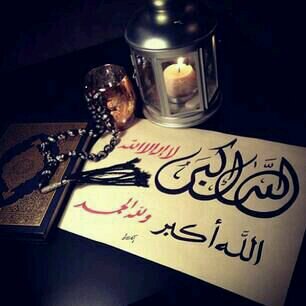 الله أكبر
لا إله إلا الله
الله أكبر
ولله الحمد